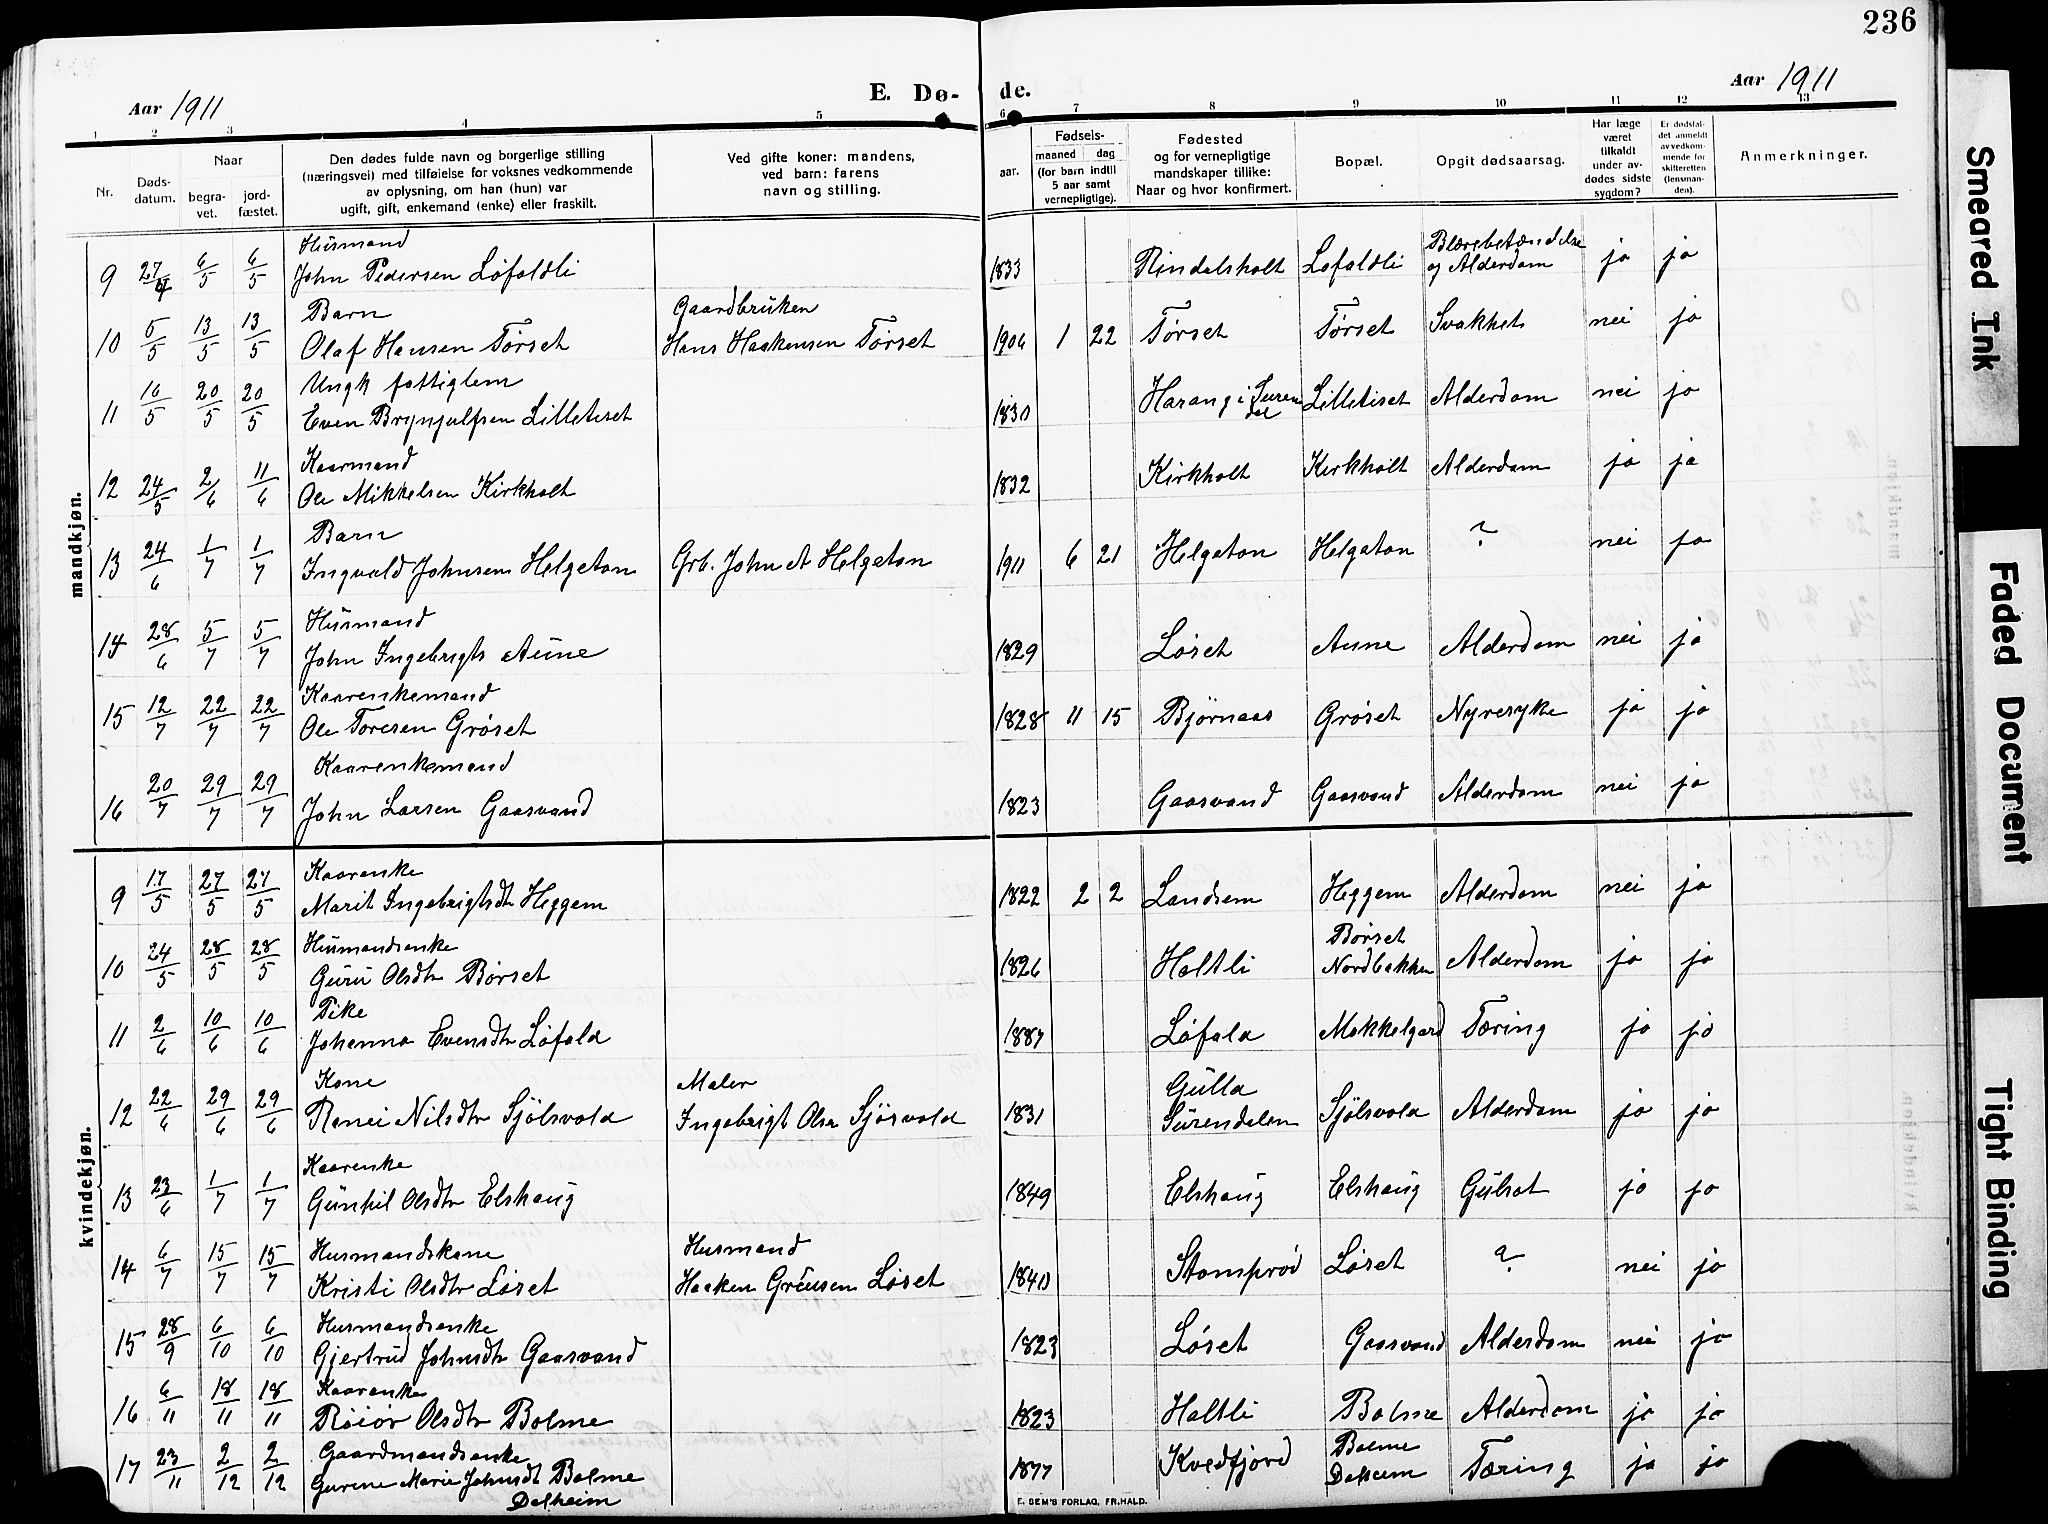 236
Aar 1911
E. Dø-
de.
Aar 1911
1 2 3 4 5
6 7 8 9 10 11 12 13
Nr.
Døds-
datum.
Naar
begra-
vet.
jord-
fæstet.
Den dødes fulde navn og borgerlige stilling
(næringsvei) med tilføielse for voksnes vedkommende
av oplysning, om han (hun) var
ugift, gift, enkemand (enke) eller fraskilt.
Ved gifte koner: mandens,
ved barn: farens
navn og stilling.
Fødsels-
aar.
maaned dag
(for barn indtil
5 aar samt
vernepligtige).
Fødested
og for vernepligtige
mandskaper tillike:
Naar og hvor konfirmert.
Bopæl.
Opgit dødsaarsag.
Har læge
været
tilkaldt
under av-
dødes sidste
sygdom?
Er dødsfal-
det anmeldt
av vedkom-
mende for
skifteretten
(lensman-
den).
Anmerkninger.
mandkjøn.
Husmand Blærebetændelse
9 27/4 6/5 6/5 John Pedersen Løfaldli 1833 Rindalsholt Løfaldli og Alderdom ja ja
Barn Gaardbruker
10 5/5 13/5 13/5 Olaf Hansen Tørset Hans Haakensen Tørset 1906 1 22 Tørset Tørset Svakhet nei ja
Ungk fattiglem
11 16/5 20/5 20/5 Even Brynjulfsen Lilletiset 1830 Harang i Surendal Lilletiset Alderdom nei ja
Kaarmand
12 24/5 2/6 11/6 Ole Mikkelsen Kirkholt 1832 Kirkholt Kirkholt Alderdom ja ja
Barn
13 24/6 1/7 1/7 Ingvald Johnsen Helgeton Grb. John A Helgeton 1911 6 21 Helgeton Helgeton ? nei ja
Husmand
14 28/6 5/7 5/7 John Ingebrigts Aune 1829 Løset Aune Alderdom nei ja
Kaarenkemand
15 12/7 22/7 22/7 Ole Toresen Grøset 1828 11 15 Bjørnaas Grøset Nyresyke ja ja
Kaarenkemand
16 20/7 29/7 29/7 John Larsen Gaasvand 1823 Gaasvand Gaasvand Alderdom nei ja
kvindekjøn.
Kaarenke
9 17/5 27/5 27/5 Marit Ingebrigtsdt Heggem 1822 2 2 Landsem Heggem Alderdom nei ja
Husmandsenke Børset
10 24/5 28/5 28/5 Guru Olsdtr Børset 1826 Holtli Nordbakken Alderdom ja ja
Pike
11 2/6 10/6 10/6 Johanna Evensdtr Løfald 1887 Løfald Mokkelgard Tæring ja ja
Kone Maler Gulla
12 22/6 29/6 29/6 Renei Nilsdtr Sjølsvold Ingebrigt Olsn Sjøsvold 1831 Surendalen Sjølsvold Alderdom ja ja
Kaarenke
13 23/6 1/7 1/7 Gunhil Olsdtr Elshaug 1849 Elshaug Elshaug Gulsot ja ja
Husmandskone Husmand
14 6/7 15/7 15/7 Kristi Olsdtr Løset Haaken Løset 1840 Stomprød Løset ? nei ja
Husmandsenke
15 28/9 6/10 6/10 Gjertrud Johnsdtr Gaasvand 1823 Løset Gaasvand Alderdom nei ja
Kaarenke
16 6/11 18/11 18/11 Røiør Olsdtr Bolme 1823 Holtli Bolme Alderdom ja ja
Gaardmandsenke Bolme
17 23/11 2/12 2/12 Gurine Marie Johnsdt Bolme 1877 Kvedfjord Dalheim Tæring ja ja
Dalheim
E. SEM'S FORLAG, FR.HALD.
Smeared Ink
Faded Document
Tight Binding